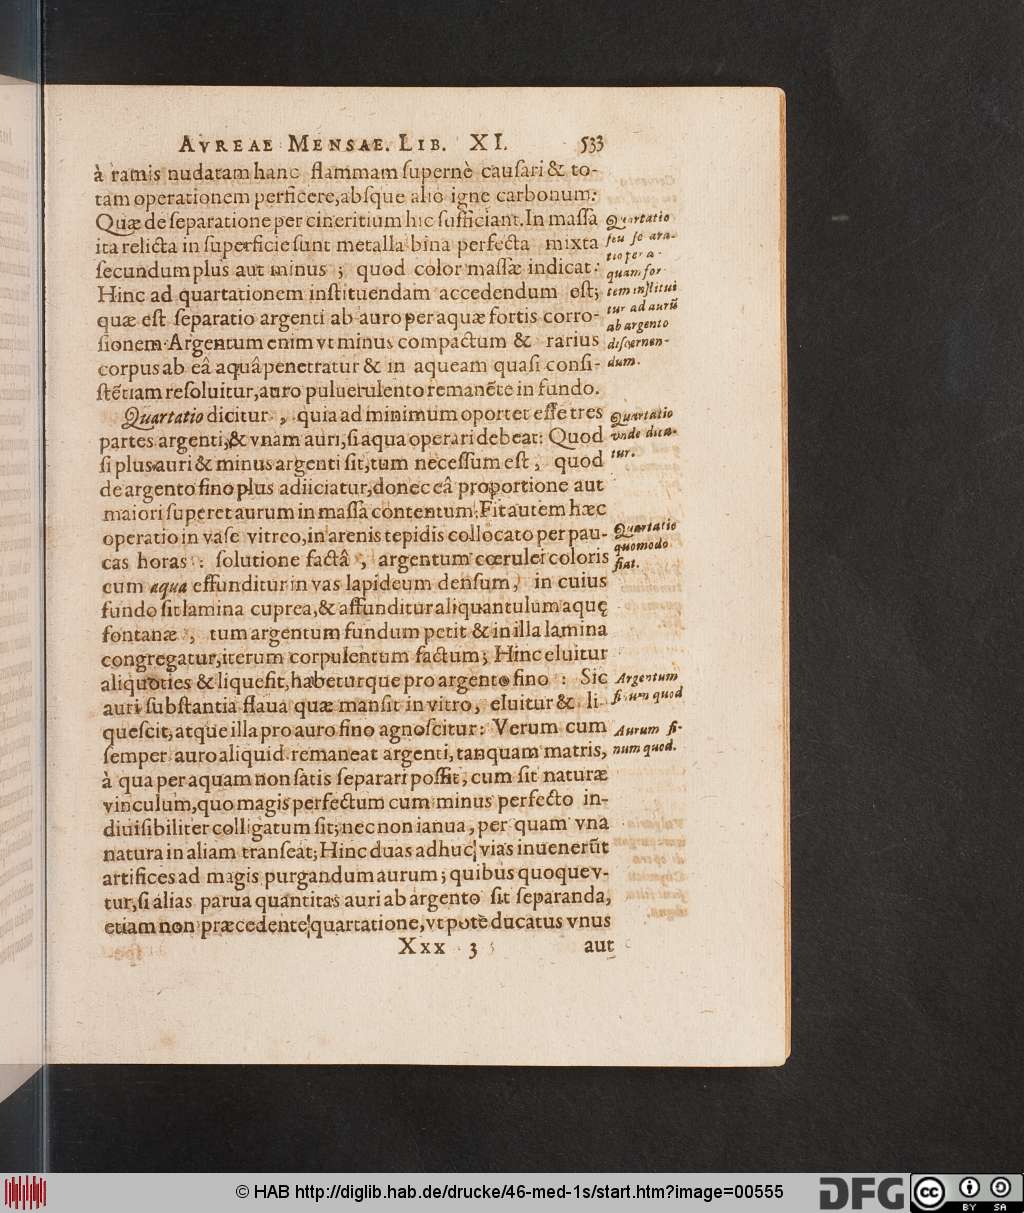 AVREAE MENSAE. LIB. XI. 533
à ramis nudatam hanc flammam supernè causari & to-
tam operationem perficere, absque alio igne carbonum:
Quæ de separatione per cineritium hic sufficiant. In massa
ita relicta in superficie sunt metalla bina perfecta mixta
secundum plus aut minus ; quod color massæ indicat:
Hinc ad quartationem instituendam accedendum est;
quæ est separatio argenti ab auro per aquæ fortis corro-
sionem. Argentum enim vt minus compactum & rarius
corpus ab eâ aquâ penetratur & in aqueam quasi consi-
stẽtiam resoluitur, auro puluerulento remanẽte in fundo.
Quartatio seu se ara-
tio per a-
quam for-
tem institui
tur ad aurũ
ab argento
discernen-
dum.
Quartatio dicitur , quia ad minimum oportet esse tres
partes argenti, & vnam auri, si aqua operari debeat: Quod
si plus auri & minus argenti sit, tum necessum est , quod
de argento fino plus adiiciatur, donec eâ proportione aut
maiori superet aurum in massa contentum; Fit autem hæc
operatio in vase vitreo, in arenis tepidis collocato per pau-
cas horas : solutione factâ , argentum cœrulei coloris
cum aqua effunditur in vas lapideum densum, in cuius
fundo sit lamina cuprea, & affunditur aliquantulum aquę
fontanæ , tum argentum fundum petit & in illa lamina
congregatur, iterum corpulentum factum; Hinc eluitur
aliquoties & liquefit, habeturque pro argento fino : Sic
auri substantia flaua quæ mansit in vitro, eluitur & li-
quescit, atque illa pro auro fino agnoscitur: Verum cum
semper auro aliquid remaneat argenti, tanquam matris,
à qua per aquam non satis separari possit, cum sit naturæ
vinculum, quo magis perfectum cum minus perfecto in-
diuisibiliter colligatum sit; nec non ianua, per quam vna
natura in aliam transeat; Hinc duas adhuc vias inuenerũt
artifices ad magis purgandum aurum; quibus quoque v-
tur, si alias parua quantitas auri ab argento sit separanda,
etiam non præcedente quartatione, vt potè ducatus vnus
Quartatio
vnde dica-
tur.
Quartatio
quomodo
fiat.
Argentum
finum quod
Aurum fi-
num quod.
Xxx 3 aut
© HAB http://diglib.hab.de/drucke/46-med-1s/start.htm?image=00555
DFG
cc BY SA